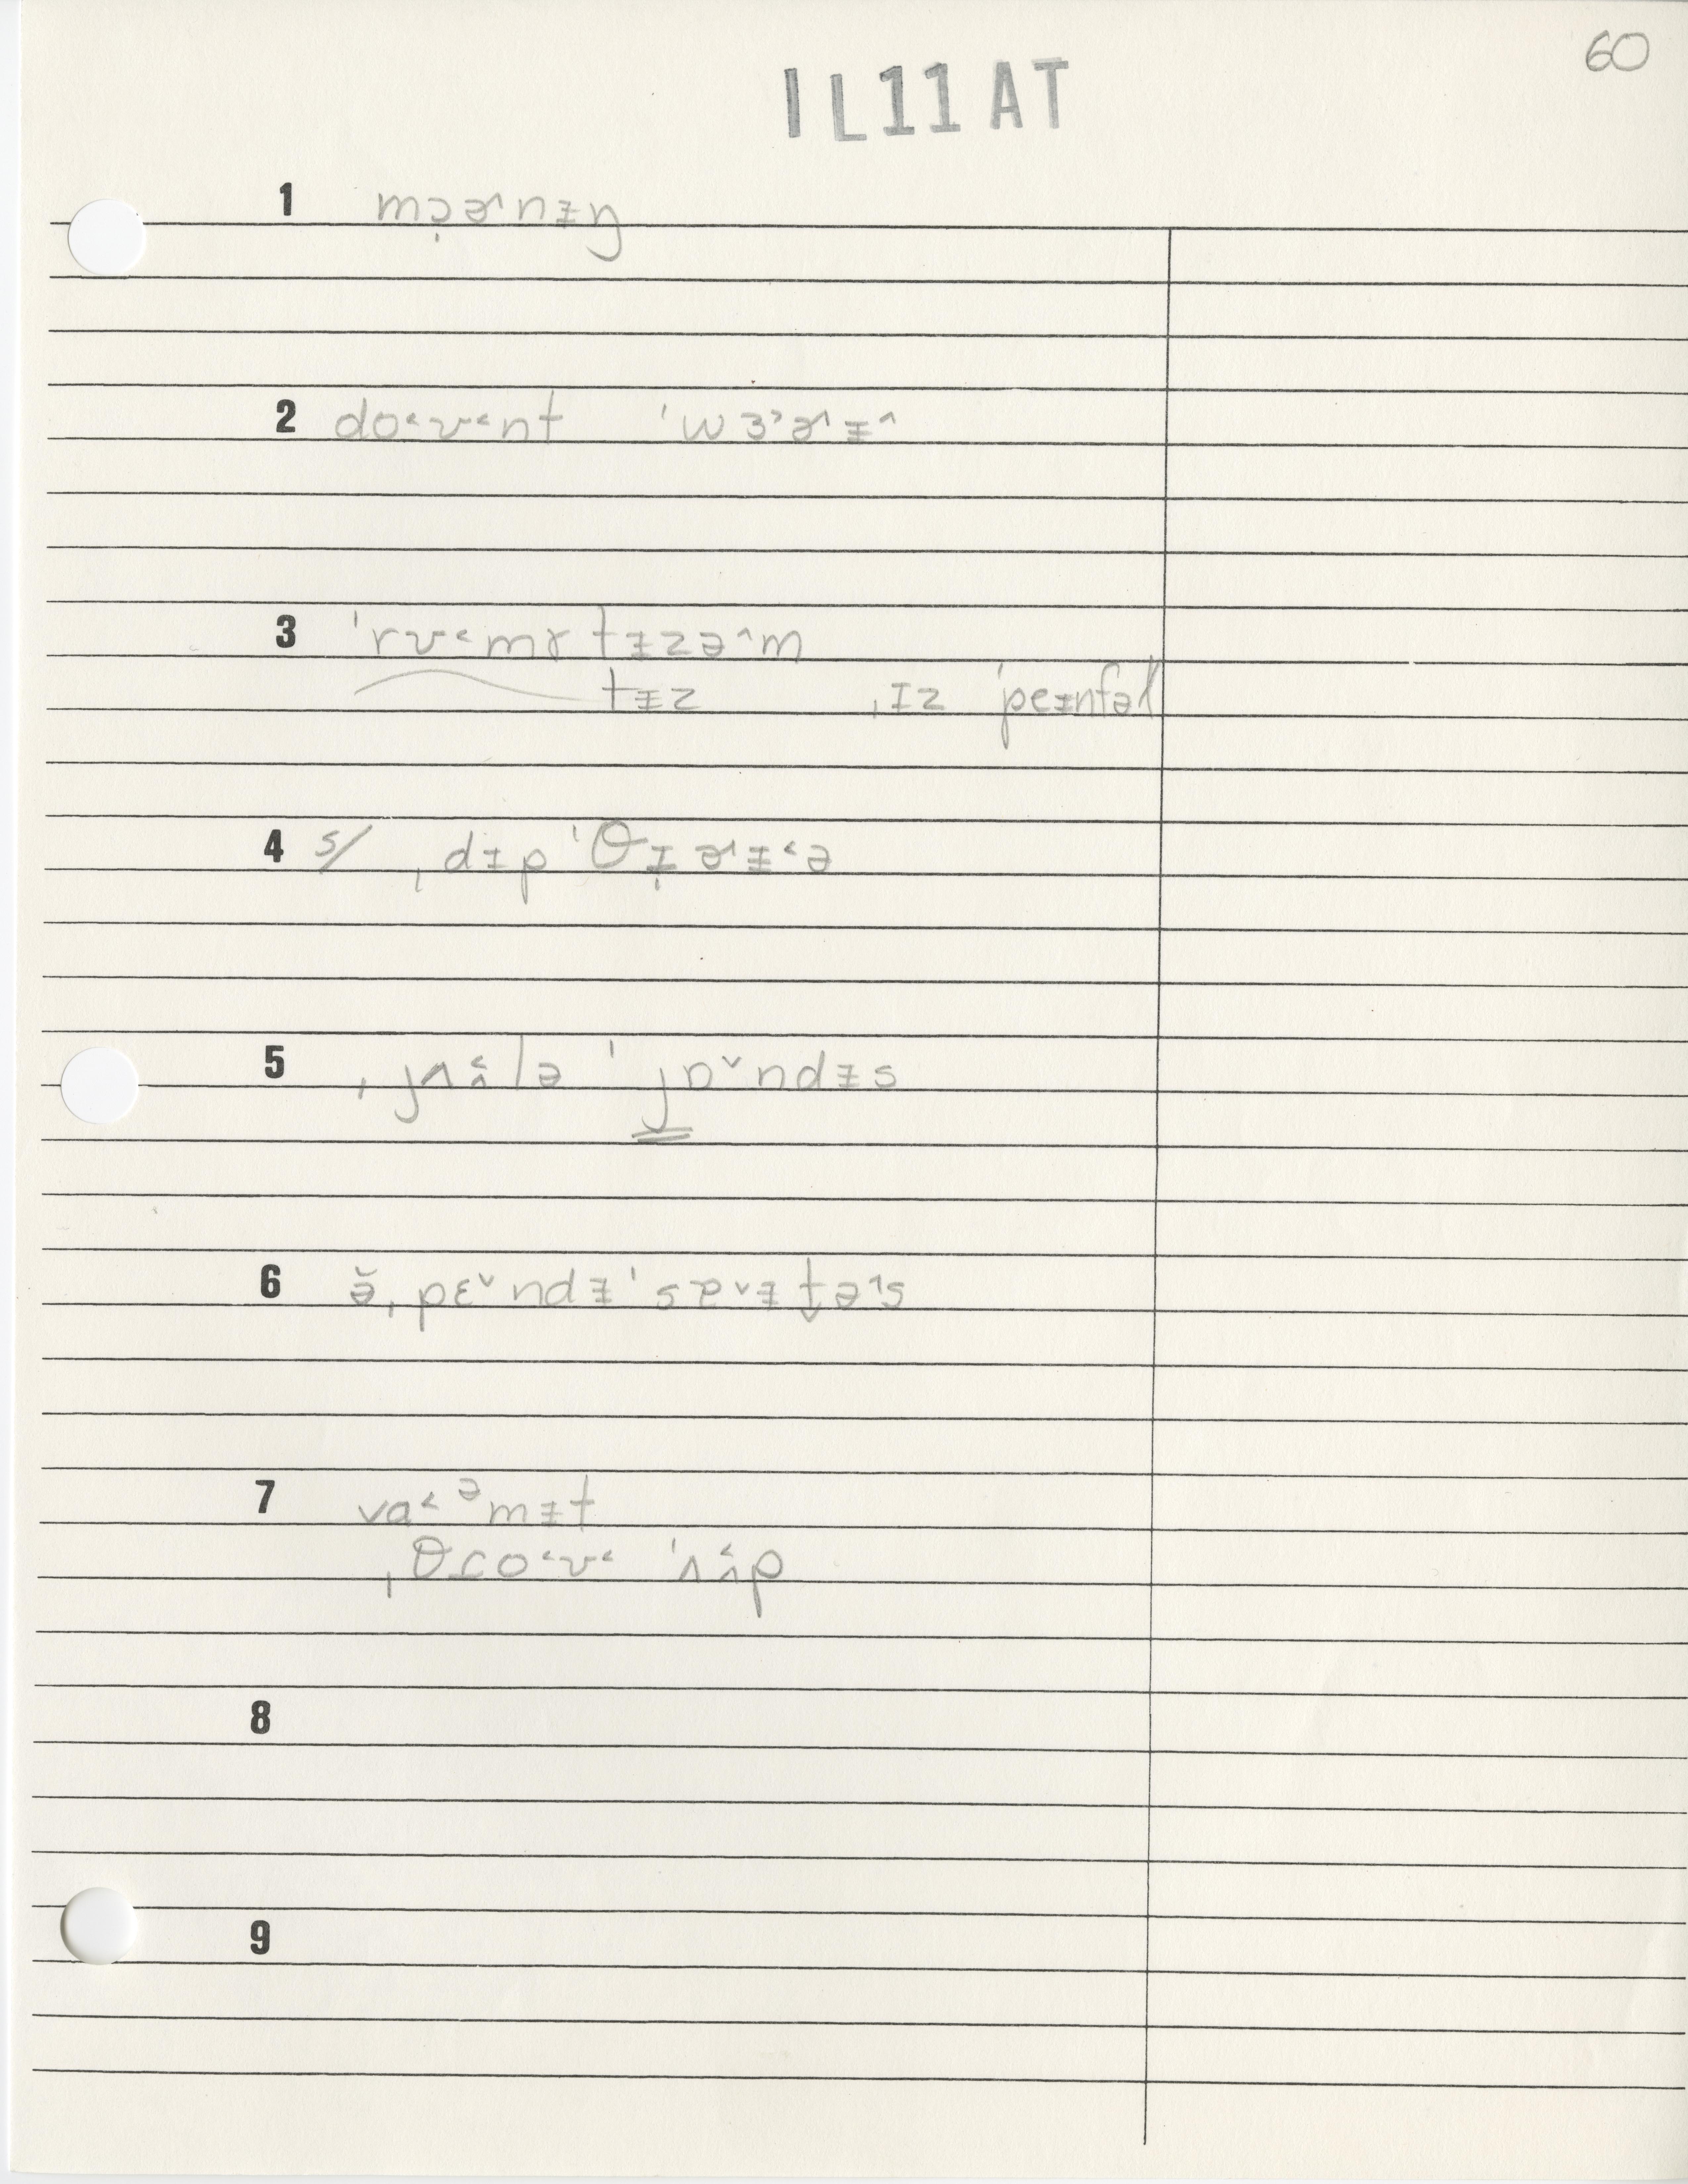 60
1L11AT
1 mɔ̩ɚnɨŋ
2 do˂ʊ˂nt ˈwɜ˃ɚɨ^
3 ˈrʊ˂mɤtɨzzə^m
tɨz ˌɪz ˈpeɨnfəl
4 s/ ˌdɨpˈθɪ̩ɚɨ˂ə
5 ˌjʌ̂lə ˈjɒˇndɨs
6 ə̆ˌpɛˇndɨˈsɐˇɨtə^s
7 va˂ᵊmɨt
ˌθɾo˂ʊ˂ ˈʌ̂p
8
9